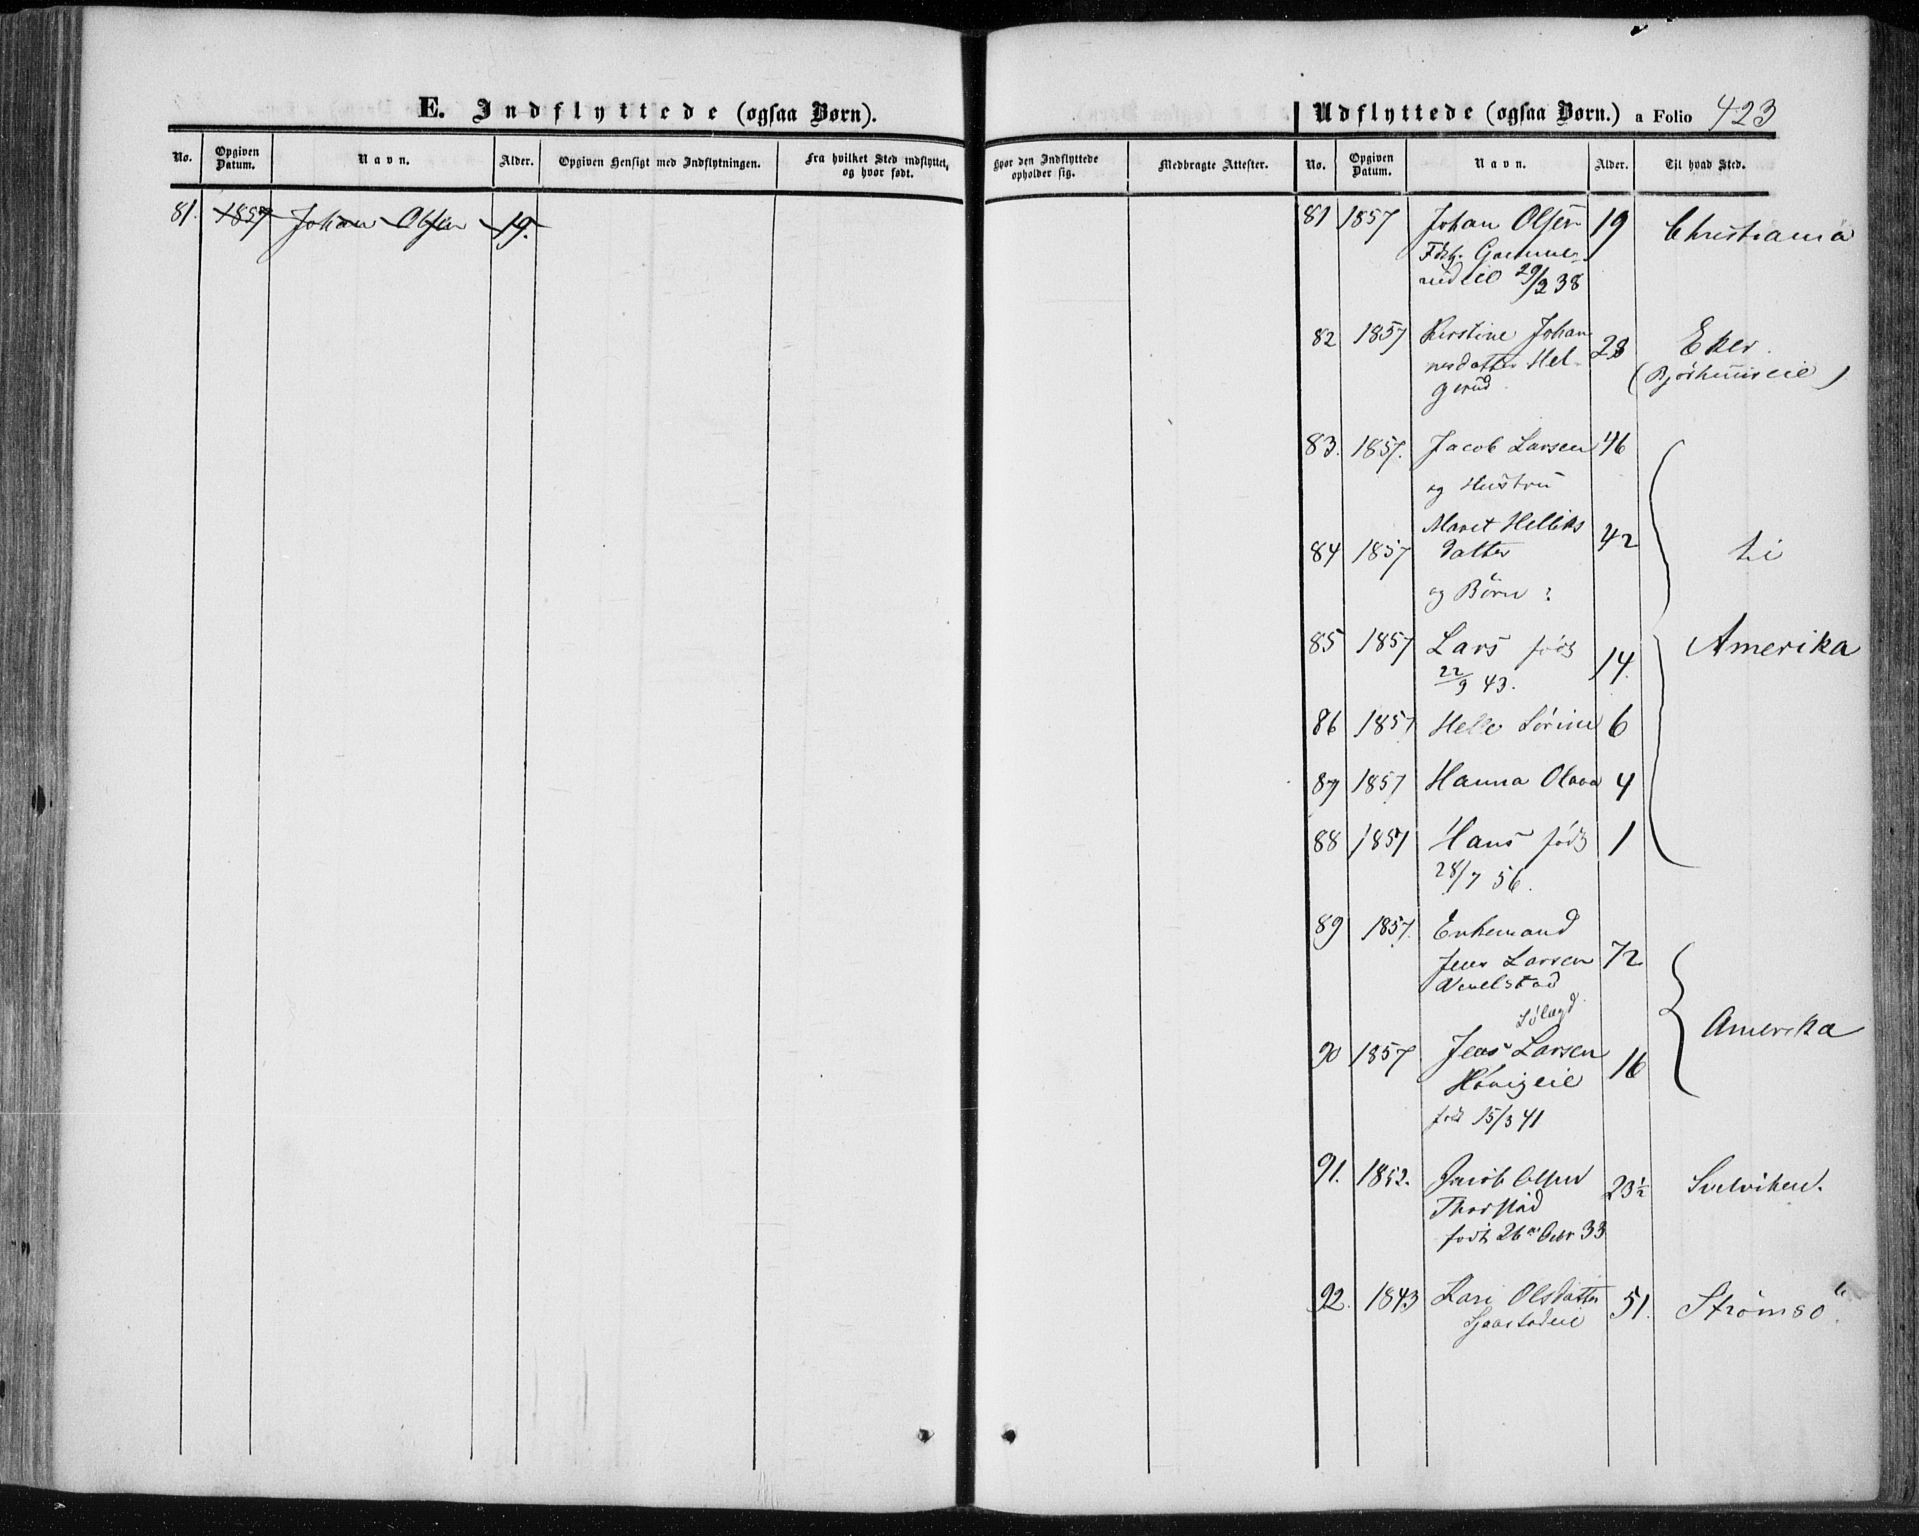 E. Indflyttede (ogsaa Børn).
No. Opgiven Datum. Navn. Alder. Opgiven Hensigt med Indflytningen. Fra hvilket Sted indflyttet, og hvor født.
81. 1857 Johan Olsen 19.
Udflyttede (ogsaa Børn.) a Folio 423
Hvor den Indflyttede opholder sig. Medbragte Attester. No. Opgiven Datum. Navn. Alder. Til hvad Sted.
81 1857 Johan Olsen 19 Christiania
29/2 38
82 1857 Kerstine Johan
nesdatter Hel- 23 Eker.
gerud
83. 1857. Jacob Larsen 46
og Hustru
Maret Helliks
84 1857 datter 42 til
og Børn :
85 1857 Lars født 14. Amerika
22/9 43.
86 1857 Helle Sørine 6
87 1857 Hanna Olava 4
88 1857 Hans født 1
28/7 56.
89 1857. Enkemand
Jens Larsen 72
Sølagd.
Amerika
90 1857 Jens Larsen 16
født 15/3 41
91. 1852. Jacob Olsen 23½ Svelviken.
Thorstad
født 26de Octbr 33
92. 1843 Kari Olsdatter 51. Strømsø